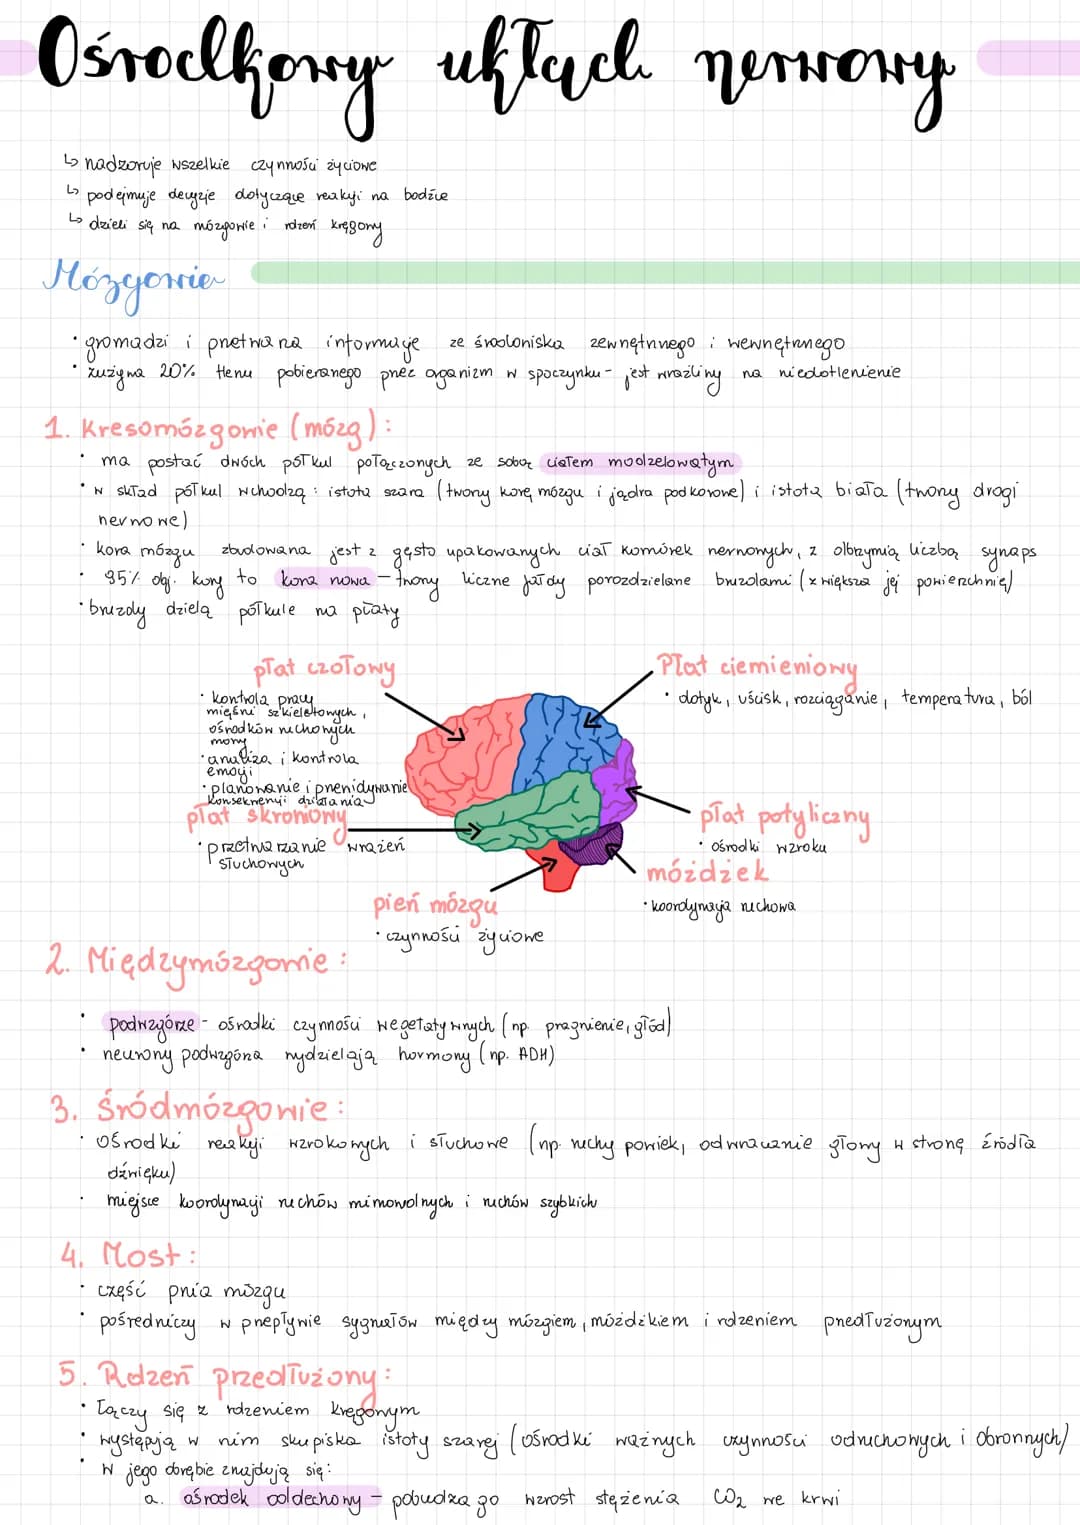 Ośrodkowy układ nerwowy
↳ nadzoruje wszelkie czynności życiowe
↳ podejmuje decyzje dotyczące reakcji na bodźce
↳ dzieli się na mózgowie i rdzeń kręgowy
Mózgowie
• gromadzi i przetwarza informacje ze środowiska zewnętrznego i wewnętrznego
• zużywa 20% tlenu pobieranego przez organizm w spoczynku - jest wrażliwy na niedotlenienie
1. Kresomózgowie (mózg):
• ma postać dwóch półkul połączonych ze sobą ciałem modzelowatym
• w skład półkul wchodzą: istota szara (tworzy korę mózgu i jądra podkorowe) i istota biała (tworzy drogi
nerwowe)
• kora mózgu zbudowana jest z gęsto upakowanych ciał komórek nerwowych, z olbrzymią liczbą synaps
• 95% obj. kory to kora nowa - tworzy liczne fałdy porozdzielane bruzdami (zwiększa jej powierzchnię)
• bruzdy dzielą półkule na płaty
płat czołowy
• kontrola pracy
mięśni szkieletowych,
ośrodków ruchowych
mowy
• analiza i kontrola
emocji
• planowanie i przewidywanie
konsekwencji działania
Płat ciemieniowy
• dotyk, uścisk, rozciąganie, temperatura, ból
płat skroniowy
• przetwarzanie wrażeń
słuchowych
płat potyliczny
• ośrodki wzroku
móżdżek
• koordynacja ruchowa
pień mózgu
• czynności życiowe
2. Międzymózgowie:
• podwzgórze - ośrodki czynności wegetatywnych (np. pragnienie, głód)
• neurony podwzgórza wydzielają hormony (np. ADH)
3. Śródmózgowie:
• ośrodki reakcji wzrokowych i słuchowe (np. ruchy powiek, odwracanie głowy w stronę źródła
dźwięku)
• miejsce koordynacji ruchów mimowolnych i ruchów szybkich
4. Most:
• część pnia mózgu
• pośredniczy w przepływie sygnałów między mózgiem, móżdżkiem i rdzeniem przedłużonym
5. Rdzeń przedłużony:
• łączy się z rdzeniem kręgowym
• występują w nim skupiska istoty szarej (ośrodki ważnych czynności odruchowych i obronnych)
• W jego obrębie znajdują się:
a. ośrodek oddechowy - pobudza go wzrost stężenia CO₂ we krwi